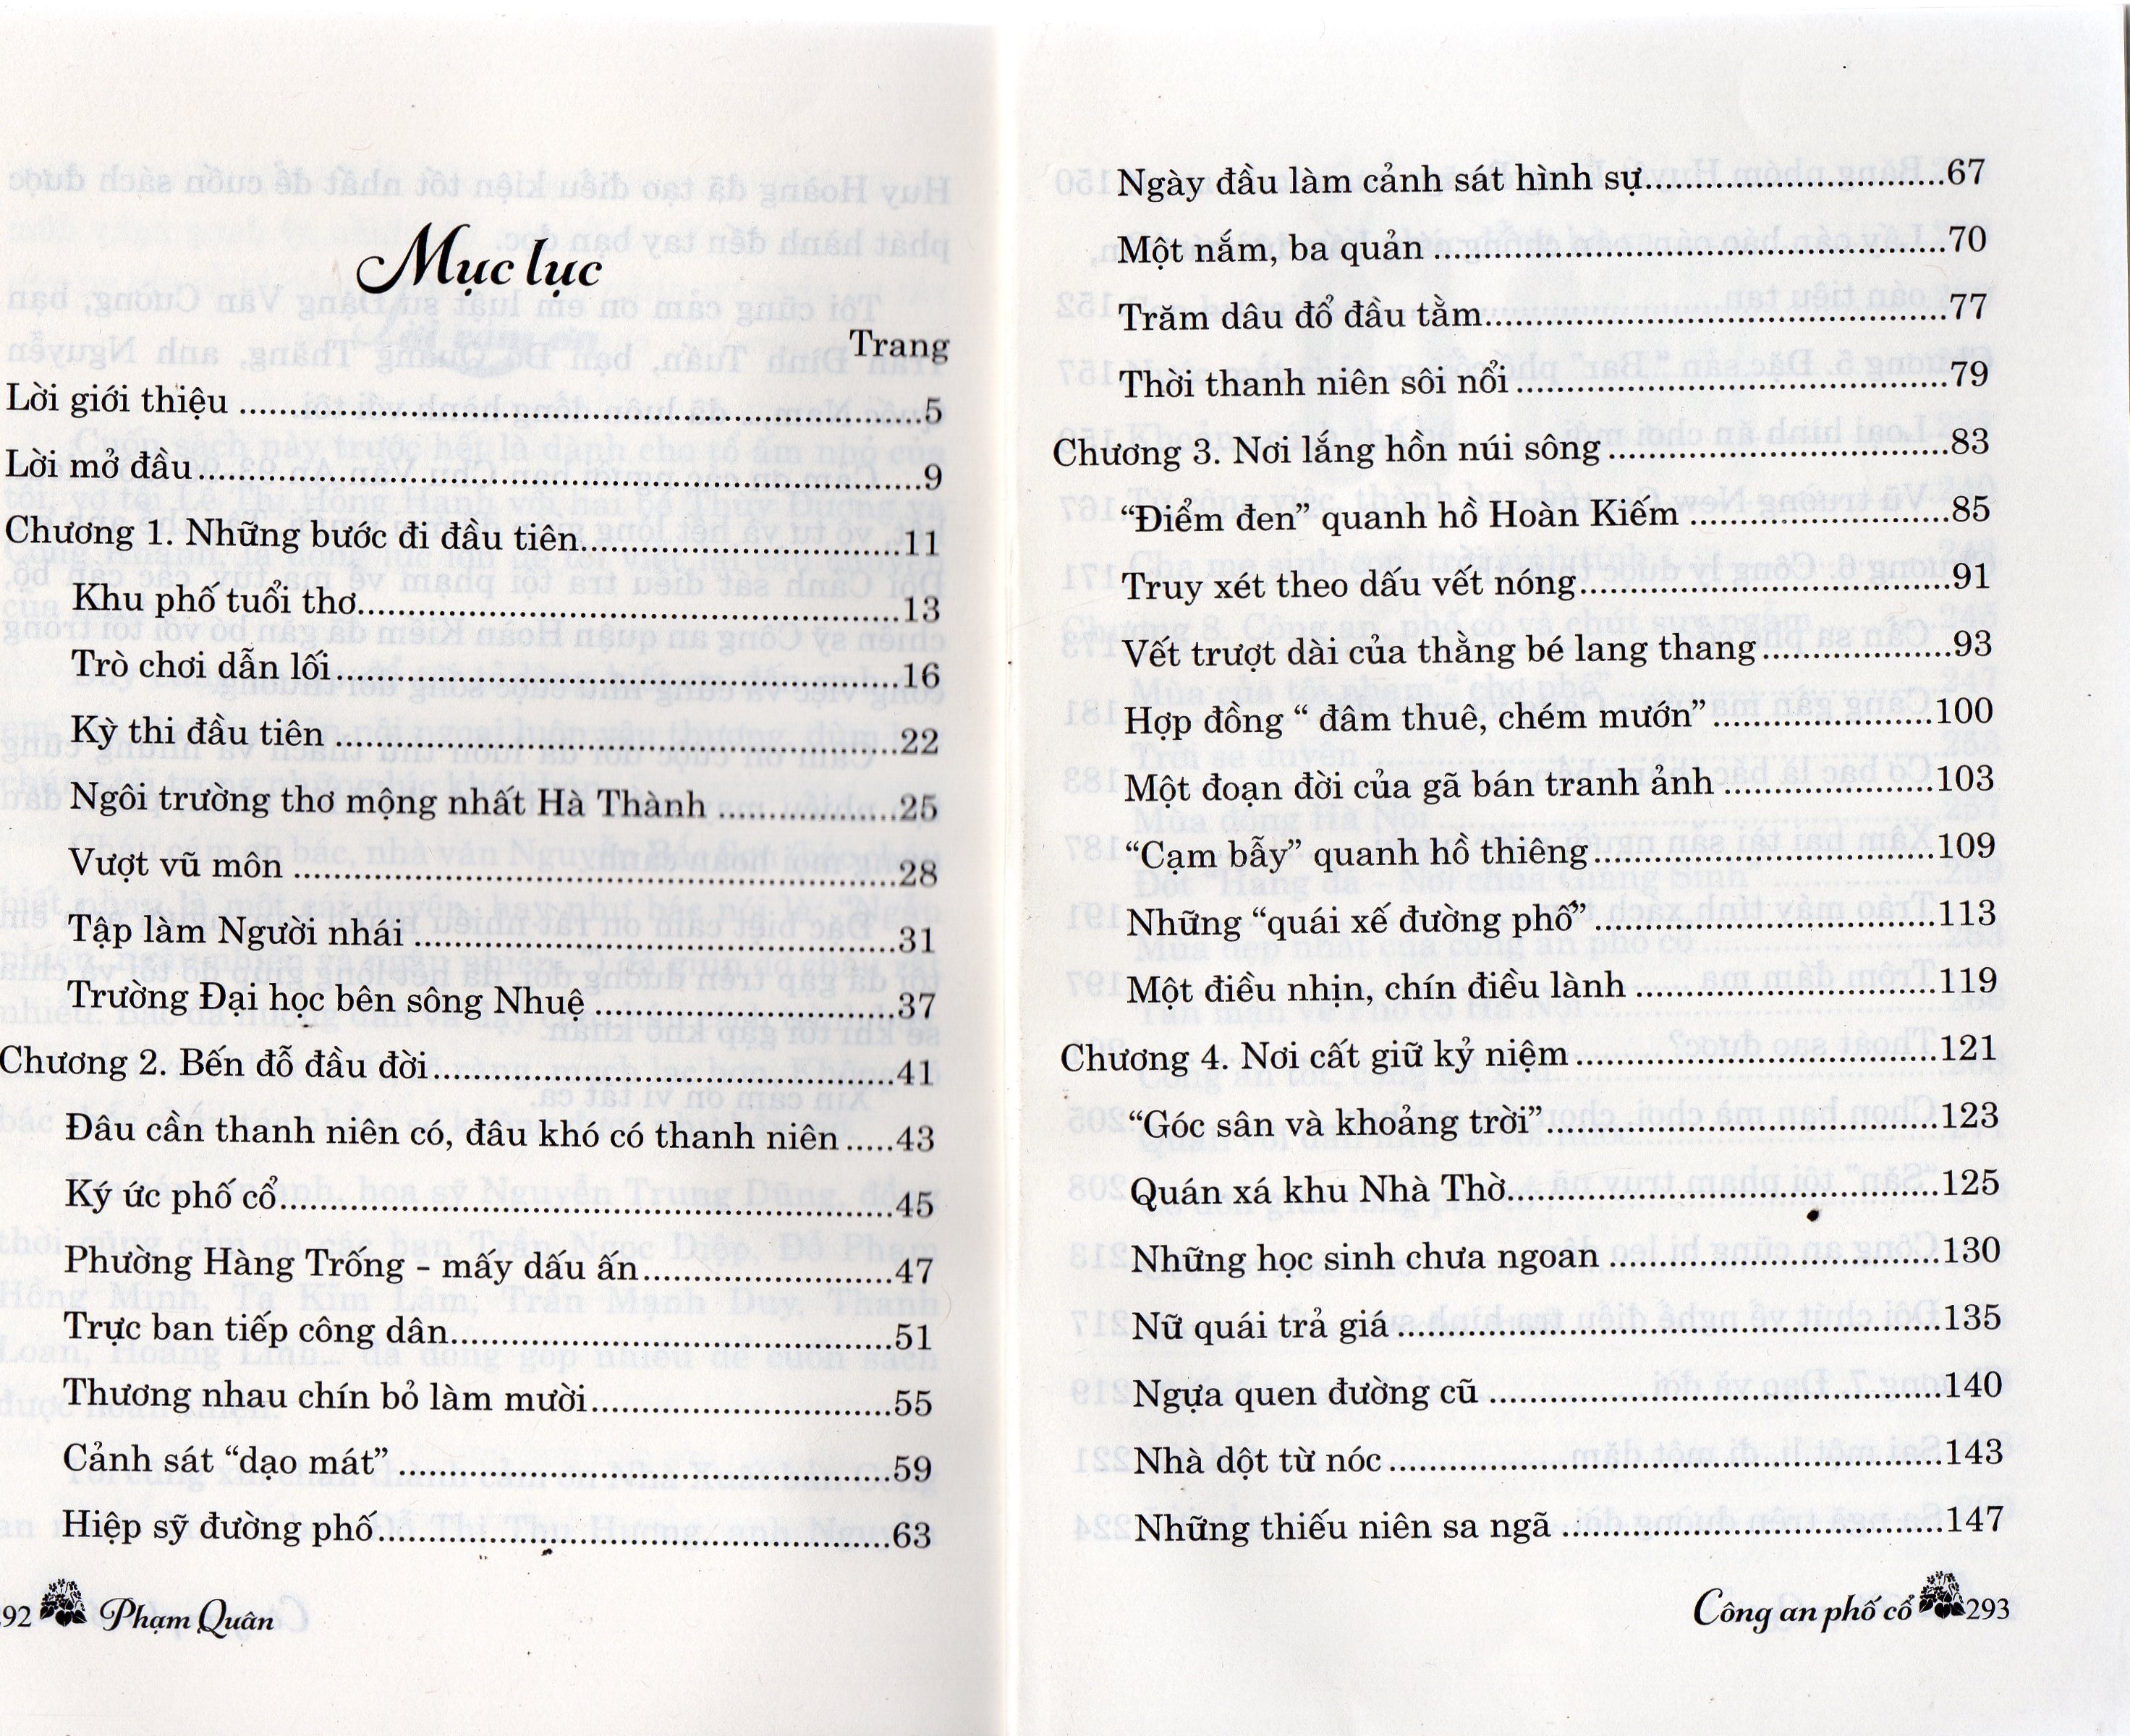 Mục lục
Trang
Lời giới thiệu ..........5
Lời mở đầu..........9
Chương 1. Những bước đi đầu tiên..........11
Khu phố tuổi thơ..........13
Trò chơi dẫn lối..........16
Kỳ thi đầu tiên ..........22
Ngôi trường thơ mộng nhất Hà Thành ..........25
Vượt vũ môn ..........28
Tập làm Người nhái ..........31
Trường Đại học bên sông Nhuệ ..........37
Chương 2. Bến đỗ đầu đời..........41
Đâu cần thanh niên có, đâu khó có thanh niên .....43
Ký ức phố cổ..........45
Phường Hàng Trống - mấy dấu ấn..........47
Trực ban tiếp công dân..........51
Thương nhau chín bỏ làm mười..........55
Cảnh sát “dạo mát” ..........59
Hiệp sỹ đường phố..........63
92 Phạm Quân
Ngày đầu làm cảnh sát hình sự..........67
Một nắm, ba quản ..........70
Trăm dâu đổ đầu tằm..........77
Thời thanh niên sôi nổi ..........79
Chương 3. Nơi lắng hồn núi sông ..........83
“Điểm đen” quanh hồ Hoàn Kiếm ..........85
Truy xét theo dấu vết nóng..........91
Vết trượt dài của thằng bé lang thang ..........93
Hợp đồng “ đâm thuê, chém mướn” ..........100
Một đoạn đời của gã bán tranh ảnh ..........103
“Cạm bẫy” quanh hồ thiêng..........109
Những “quái xế đường phố” ..........113
Một điều nhịn, chín điều lành ..........119
Chương 4. Nơi cất giữ kỷ niệm ..........121
“Góc sân và khoảng trời” ..........123
Quán xá khu Nhà Thờ..........125
Những học sinh chưa ngoan ..........130
Nữ quái trả giá ..........135
Ngựa quen đường cũ ..........140
Nhà dột từ nóc ..........143
Những thiếu niên sa ngã ..........147
Công an phố cổ 293